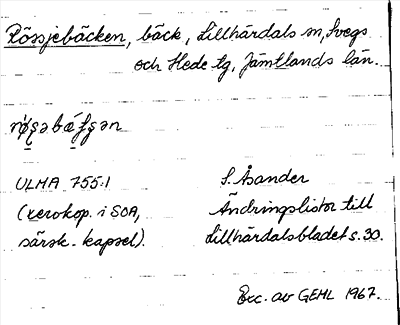 Rössjebäcken, bäck, Lillhärdals sn, Svegs
och Hede tg, Jämtlands län.
ULMA 755:1
(xerokop. i SOA,
särsk. kapsel).
S. Åsander
Ändringslistor till
Lillhärdalsbladet s. 30.
Exc. av GEHL 1967.